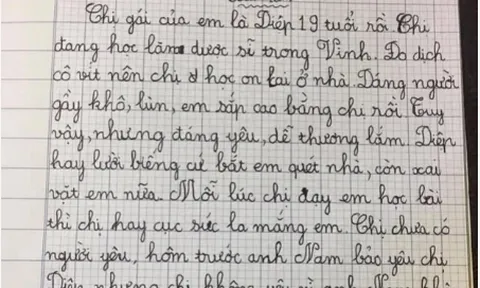 Chị gái của em là Diệp 19 tuổi rồi. Chị
đang học làm dược sĩ trong Vinh. Do dịch
cô vít nên chị học on lai ở nhà. Dáng người
gầy khô, lùn, em sắp cao bằng chị rồi. Tuy
vậy, nhưng đáng yêu, dễ thương lắm. Diệp
hay lười biếng cứ bắt em quét nhà, còn xai
vặt em nữa. Mỗi lúc chị dạy em học bài
thì chị hay cục súc la mắng em. Chị chưa có
người yêu, hôm trước anh Nam bảo yêu chị
Diệp nhưng chị không yêu vì anh Nam